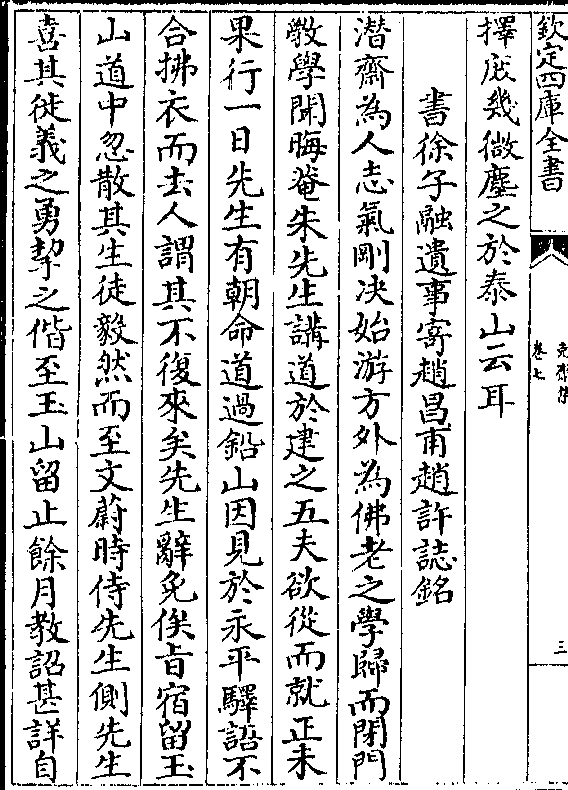 欽定四庫全書
克齋集
卷七
三
擇庶幾微塵之於泰山云耳
書徐子融遺事寄趙昌甫趙許誌銘
潛齋為人志氣剛决始游方外為佛老之學歸而閉門
敎學聞晦菴朱先生講道於建之五夫欲從而就正未
果行一日先生有朝命道過鉛山因見於永平驛語不
合拂衣而去人謂其不復來矣先生辭免俟㫖宿留玉
山道中忽散其生徒毅然而至文蔚時侍先生側先生
喜其徙義之勇挈之偕至玉山留止餘月教詔甚詳自